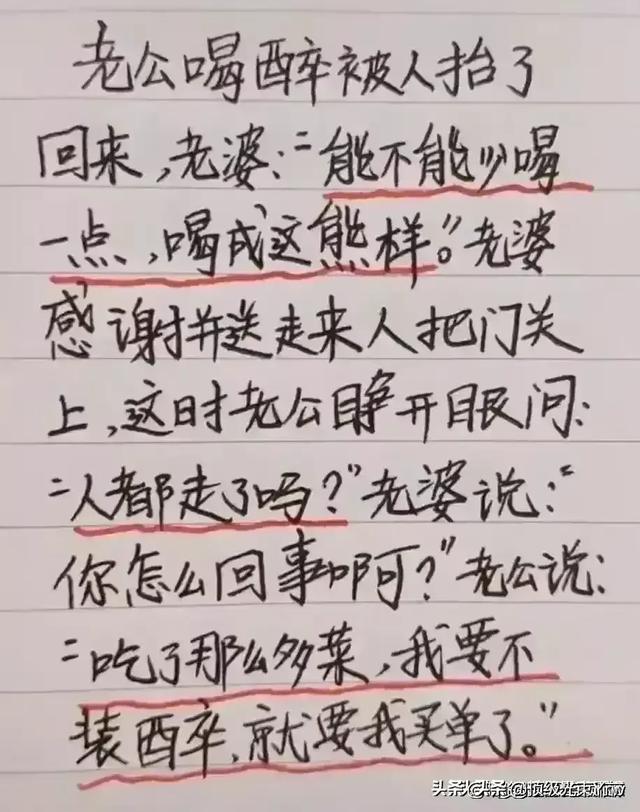 老公喝醉被人抬了
回来,老婆:“能不能少喝
一点,喝成这熊样。”老婆
感谢并送走来人把门关
上,这时老公睁开眼问:
“人都走了吗?”老婆说:“
你怎么回事啊?”老公说:
“吃了那么多菜,我要不
装醉,就要我买单了。”
头条